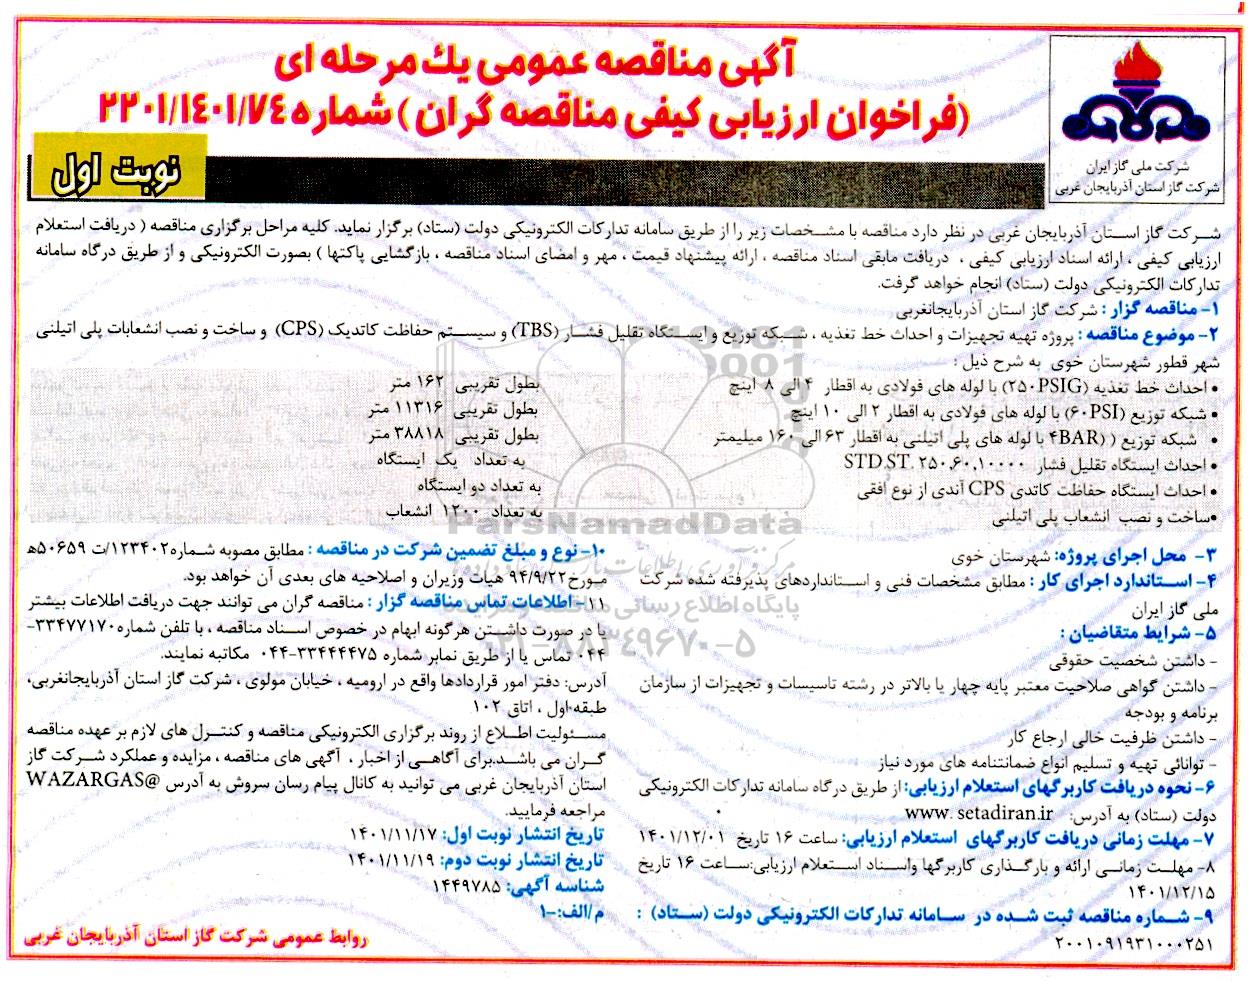 آگهی مناقصه عمومی یك مرحله ای
(فراخوان ارزیابی کیفی مناقصه گران ) شماره ۲۲۰۱/۱٤۰۱/۷٤
نوبت اول
شرکت ملی گاز ایران
شرکت گاز استان آذربایجان غربی
شرکت گاز استان آذربایجان غربی در نظر دارد مناقصه با مشخصات زیر را از طریق سامانه تدارکات الکترونیکی دولت (ستاد) برگزار نماید. کلیه مراحل برگزاری مناقصه ( دریافت استعلام
ارزیابی کیفی ، ارائه اسناد ارزیابی کیفی ، دریافت مابقی اسناد مناقصه ، ارائه پیشنهاد قیمت ، مهر و امضای اسناد مناقصه ، بازگشایی پاکتها ) بصورت الکترونیکی و از طریق درگاه سامانه
تدارکات الکترونیکی دولت (ستاد) انجام خواهد گرفت.
۱- مناقصه گزار : شرکت گاز استان آذربایجانغربی
۲- موضوع مناقصه : پروژه تهیه تجهیزات و احداث خط تغذیه ، شبکه توزیع و ایستگاه تقلیل فشار (TBS) و سیستم حفاظت کاتدیک (CPS) و ساخت و نصب انشعابات پلی اتیلنی
شهر قطور شهرستان خوی به شرح ذیل :
• احداث خط تغذیه (۲۵۰PSIG) با لوله های فولادی به اقطار ۴ الی ۸ اینچ بطول تقریبی ۱۶۲ متر
• شبکه توزیع (۶۰PSI) با لوله های فولادی به اقطار ۲ الی ۱۰ اینچ بطول تقریبی ۱۱۳۱۶ متر
• شبکه توزیع ( (۴BAR با لوله های پلی اتیلنی به اقطار ۶۳ الی ۱۶۰ میلیمتر بطول تقریبی ۳۸۸۱۸ متر
• احداث ایستگاه تقلیل فشار STD.ST. ۲۵۰.۶۰.۱۰۰۰۰ به تعداد یک ایستگاه
• احداث ایستگاه حفاظت کاتدی CPS آندی از نوع افقی به تعداد دو ایستگاه
•ساخت و نصب انشعاب پلی اتیلنی به تعداد ۱۲۰۰ انشعاب
۳- محل اجرای پروژه: شهرستان خوی
۴- استاندارد اجرای کار : مطابق مشخصات فنی و استانداردهای پذیرفته شده شرکت
ملی گاز ایران
۵- شرایط متقاضیان :
- داشتن شخصیت حقوقی
- داشتن گواهی صلاحیت معتبر پایه چهار یا بالاتر در رشته تاسیسات و تجهیزات از سازمان
برنامه و بودجه
- داشتن ظرفیت خالی ارجاع کار
- توانائی تهیه و تسلیم انواع ضمانتنامه های مورد نیاز
۶- نحوه دریافت کاربرگهای استعلام ارزیابی: از طریق درگاه سامانه تدارکات الکترونیکی
دولت (ستاد) به آدرس: www. setadiran.ir
۷- مهلت زمانی دریافت کاربرگهای استعلام ارزیابی: ساعت ۱۶ تاریخ ۱۴۰۱/۱۲/۰۱
۸- مهلت زمانی ارائه و بارگذاری کاربرگها واسناد استعلام ارزیابی:ساعت ۱۶ تاریخ
۱۴۰۱/۱۲/۱۵
۹- شماره مناقصه ثبت شده در سامانه تدارکات الکترونیکی دولت (ستاد) :
۲۰۰۱۰۹۱۹۳۱۰۰۰۲۵۱
۱۰- نوع و مبلغ تضمین شرکت در مناقصه : مطابق مصوبه شماره۱۲۳۴۰۲/ت ۵۰۶۵۹ه
مورخ۹۴/۹/۲۲ هیات وزیران و اصلاحیه های بعدی آن خواهد بود.
۱۱- اطلاعات تماس مناقصه گزار : مناقصه گران می توانند جهت دریافت اطلاعات بیشتر
یا در صورت داشتن هرگونه ابهام در خصوص اسناد مناقصه ، با تلفن شماره ۳۳۴۷۷۱۷۰-
۰۴۴ تماس یا از طریق نمابر شماره ۳۳۴۴۴۴۷۵-۰۴۴ مکاتبه نمایند.
آدرس: دفتر امور قراردادها واقع در ارومیه ، خیابان مولوی ، شرکت گاز استان آذربایجانغربی،
طبقه اول ، اتاق ۱۰۲
مسئولیت اطلاع از روند برگزاری الکترونیکی مناقصه و کنترل های لازم بر عهده مناقصه
گران می باشد.برای آگاهی از اخبار ، آگهی های مناقصه ، مزایده و عملکرد شرکت گاز
استان آذربایجان غربی می توانید به کانال پیام رسان سروش به آدرس @WAZARGAS
مراجعه فرمایید.
تاریخ انتشار نوبت اول: ۱۴۰۱/۱۱/۱۷
تاریخ انتشار نوبت دوم: ۱۴۰۱/۱۱/۱۹
شناسه آگهی: ۱۴۴۹۷۸۵
م/الف:-۱
روابط عمومی شرکت گاز استان آذربایجان غربی
ParsNamadData
پایگاه اطلاع رسانی مناقصه و مزایده
۰۲۱-۸۸۳۴۹۶۷۰-۵